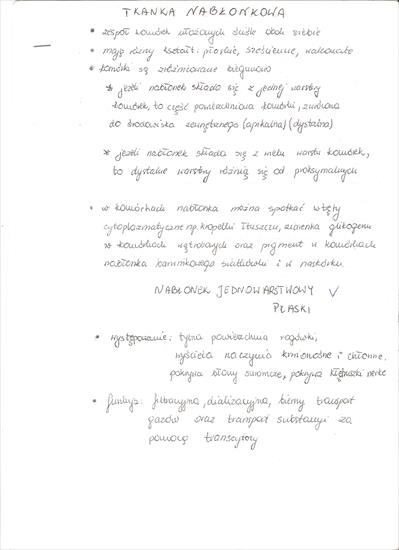 TKANKA NABŁONKOWA
• zespół komórek ułożonych ściśle obok siebie
• mają różny kształt: płaskie, sześcienne, walcowate
• komórki są zróżnicowane biegunowo
* jeżeli nabłonek składa się z jednej warstwy
komórek, to część powierzchniowa komórki, zwrócona
do środowiska zewnętrznego (apikalna) (dystalna)
* jeżeli nabłonek składa się z wielu warstw komórek,
to dystalne warstwy różnią się od proksymalnych
• w komórkach nabłonka można spotkać wtręty
cytoplazmatyczne np. kropelki tłuszczu, ziarenka glikogenu
w komórkach wątrobowych oraz pigment w komórkach
nabłonka barwnikowego siatkówki i w naskórku.
NABŁONEK JEDNOWARSTWOWY
PŁASKI
• występowanie: tylna powierzchnia rogówki,
wyściela naczynia krwionośne i chłonne,
pokrywa błony surowicze, pokrywa kłębuszki nerek
• funkcje: filtracyjna, dializacyjna, bierny transport
gazów oraz transport substancji za
pomocą transcytozy